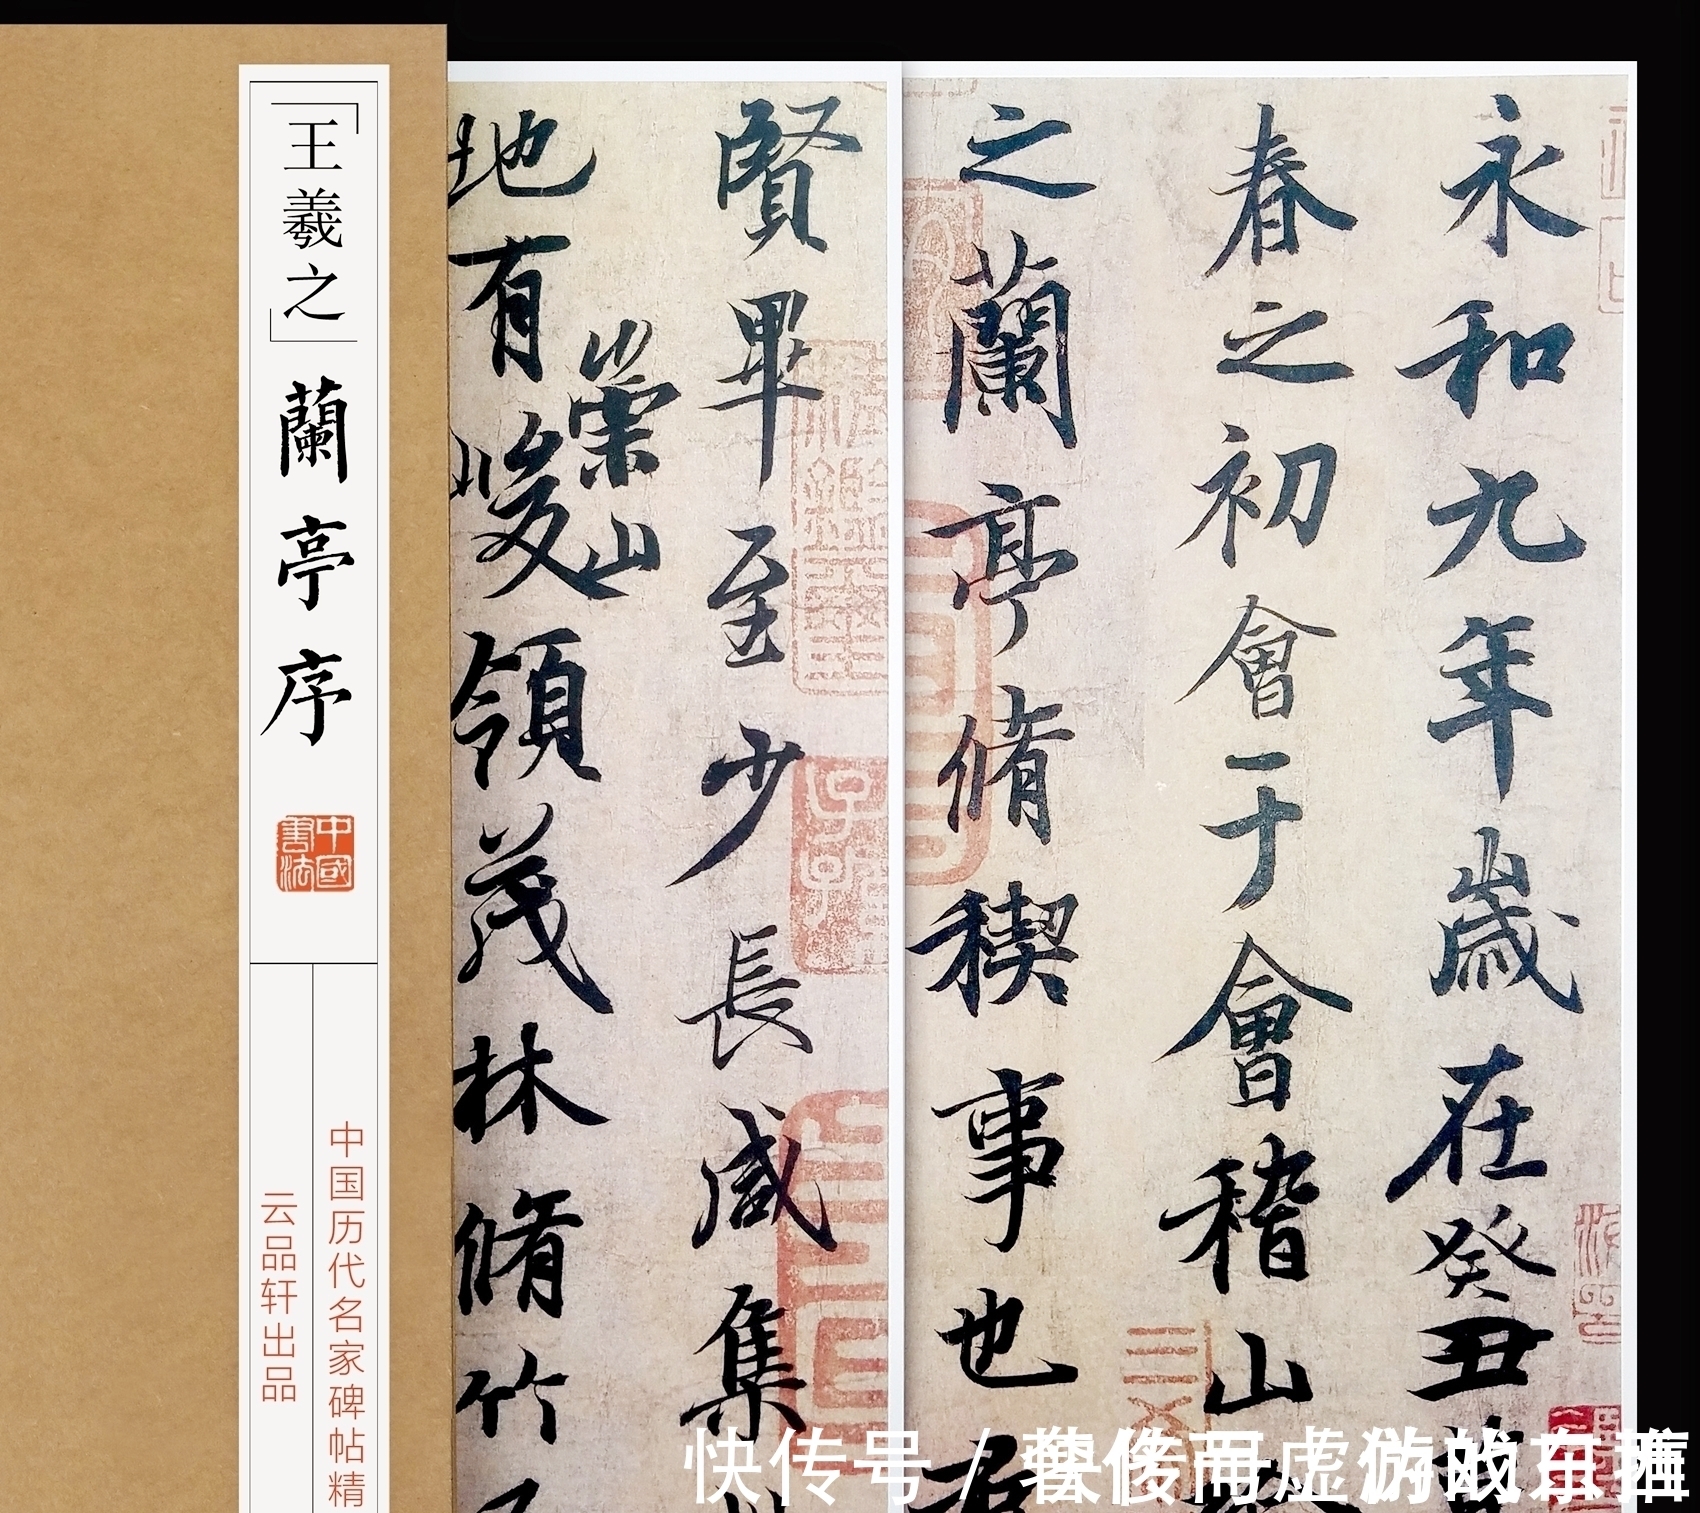 永和九年歲在癸丑暮
春之初會于會稽山
之蘭亭脩稧事也
賢畢至少長咸集
地有崇山峻領茂林脩竹
「王羲之」
蘭亭序
中國書法
中国历代名家碑帖精
云品轩出品
快传号 /